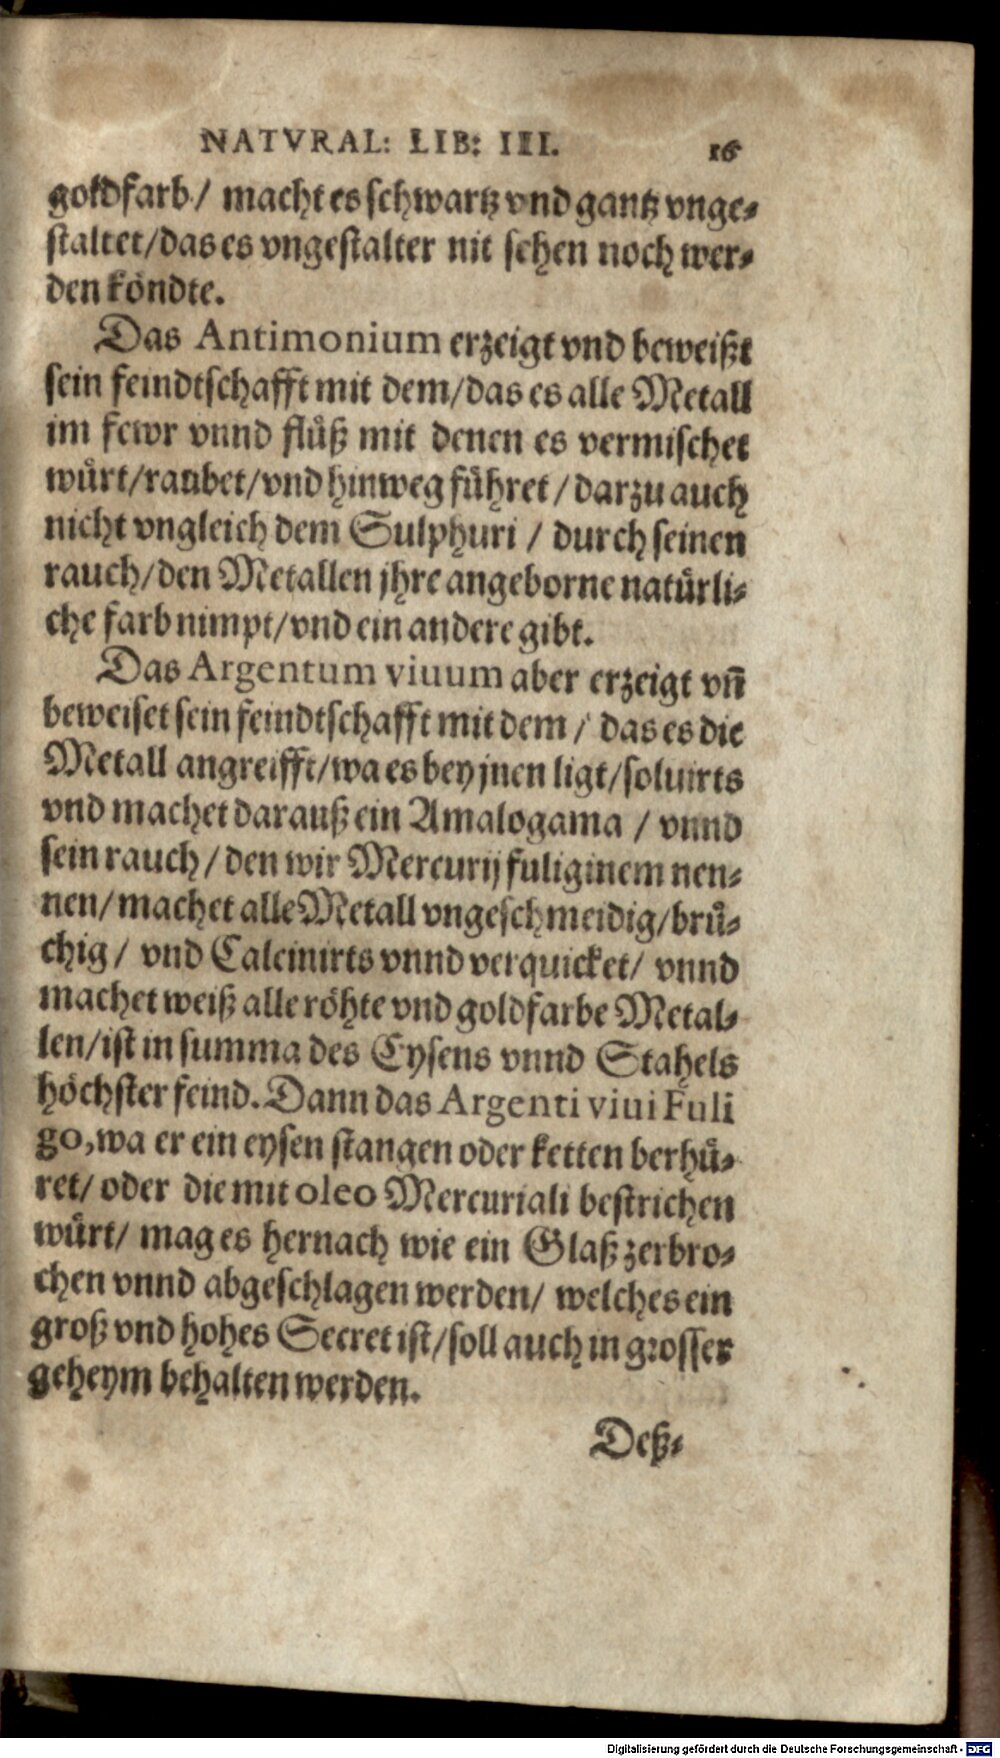 NATVRAL: LIB: III. 16
goldfarb/ macht es schwartz vnd gantz vnge⸗
staltet/das es vngestalter nit sehen noch wer⸗
den köndte.
Das Antimonium erzeigt vnd beweißt
sein feindtschafft mit dem/das es alle Metall
im fewr vnnd flüß mit denen es vermischet
würt/raubet/vnd hinweg führet/darzu auch
nicht vngleich dem Sulphuri / durch seinen
rauch/den Metallen jhre angeborne natürli⸗
che farb nimpt/vnd ein andere gibt.
Das Argentum viuum aber erzeigt vñ
beweiset sein feindtschafft mit dem / das es die
Metall angreifft/wa es bey jnen ligt/soluirts
vnd machet darauß ein Amalogama / vnnd
sein rauch/den wir Mercurij fuliginem nen⸗
nen/machet alle Metall vngeschmeidig/brü⸗
chig/ vnd Calcinirts vnnd verquicket/ vnnd
machet weiß alle röhte vnd goldfarbe Metal⸗
len/ist in summa des Eysens vnnd Stahels
höchster feind. Dann das Argenti viui Fuli
go, wa er ein eysen stangen oder ketten berhü⸗
ret/oder die mit oleo Mercuriali bestrichen
würt/ mag es hernach wie ein Glaß zerbro⸗
chen vnnd abgeschlagen werden/ welches ein
groß vnd hohes Secret ist/soll auch in grosser
geheym behalten werden.
Deß⸗
Digitalisierung gefördert durch die Deutsche Forschungsgemeinschaft - DFG